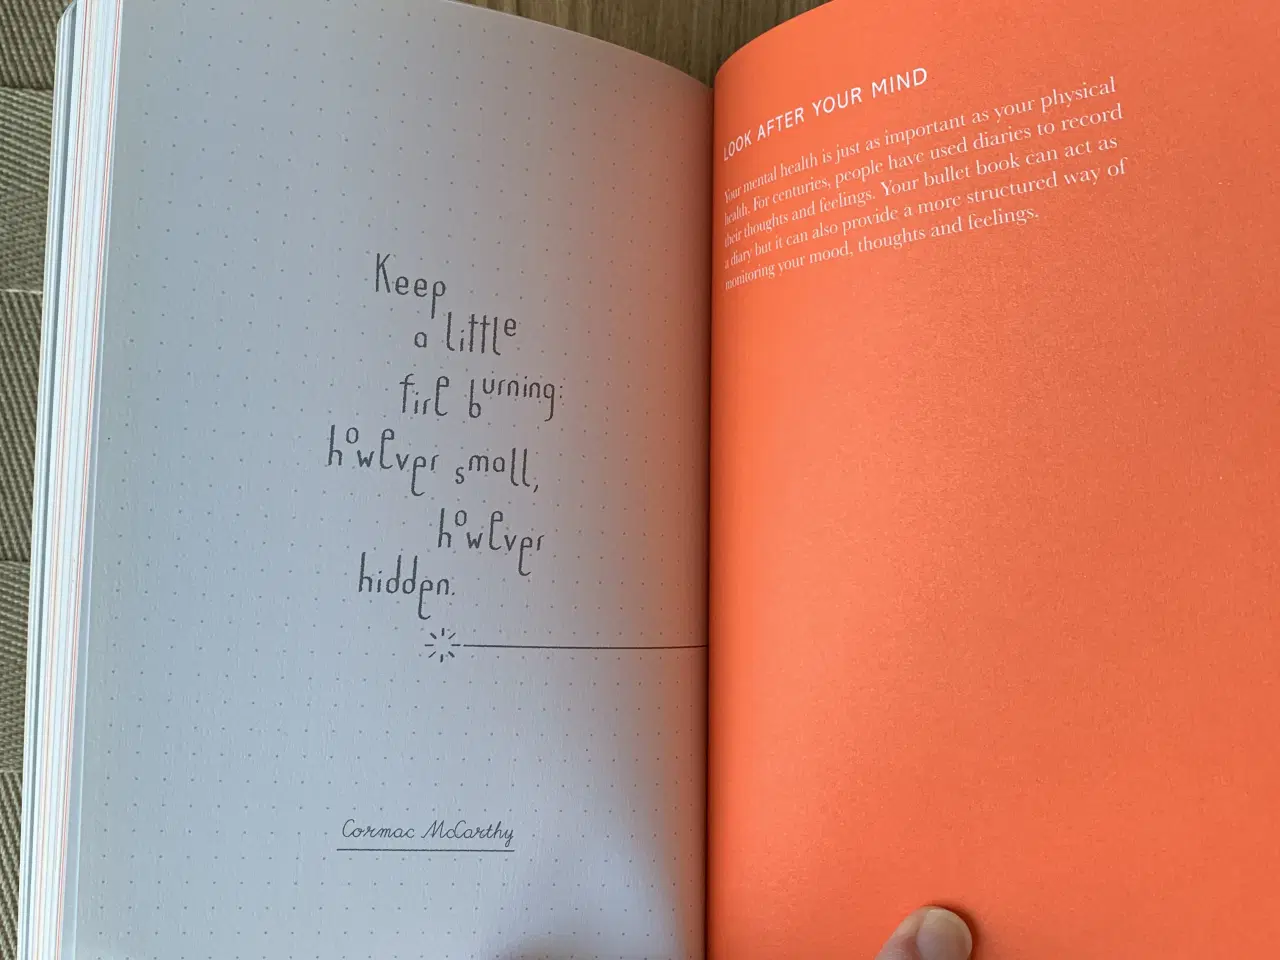 Keep
a little
fire burning:
however small,
however
hidden.
Cormac McCarthy
LOOK AFTER YOUR MIND
Your mental health is just as important as your physical
health. For centuries, people have used diaries to record
their thoughts and feelings. Your bullet book can act as
a diary but it can also provide a more structured way of
monitoring your mood, thoughts and feelings.